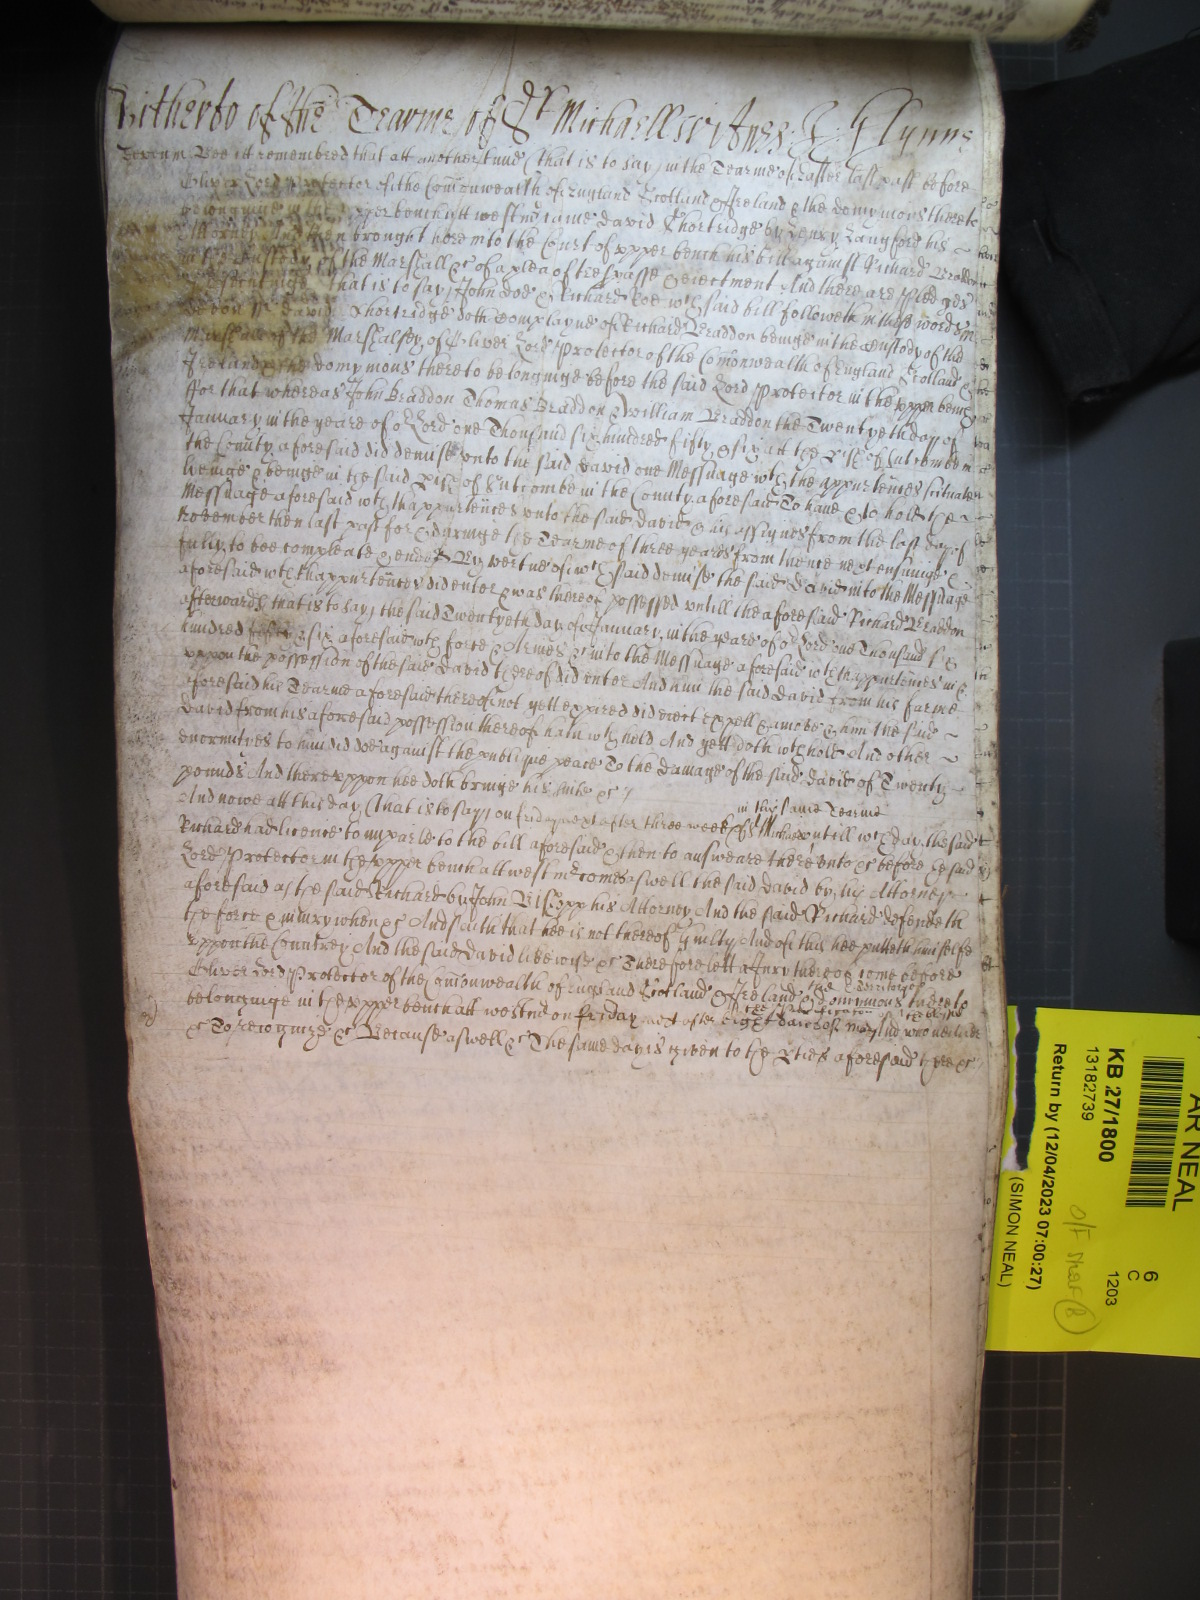 Hitherto of the Tearme of St Michaell Witnes J: Glynne
Bee itt remembred that att another time (that is to say) in the Tearme of Easter last past before
Oliver Lord Protector of the Com̄onwealth of England Scotland & Ireland & the domynions thereto
belonginge in the upper bench att westmr came David Shortridge by Henry Langford his
Attorney And then brought here into the Court of upper bench his bill against Richard Braddon
in the custody of the Marshall &c of a plea of trespasse & eiectment And there are pledges
that is to say, John Doe & Richard Roe wch said bill followeth in these words
David Shortridge doth complayne of Richard Braddon beinge in the custody of the
Marshall of the Marshalsey of Oliver Lord Protector of the Com̄onwealth of England Scotland &
Ireland & the domynions thereto belonginge before the said Lord Protector in the upper bench
ffor that whereas John Braddon Thomas Braddon & William Braddon the Twentyeth day of
January in the yeare of or Lord one Thousand six hundred fifty & six att the Pish of Sutcombe in
the County aforesaid did demise unto the said David one Messuage wth the appurtences scituate
lieinge & beinge in the said Pish of Sutcombe in the County aforesaid To have & to hold the
Messuage aforesaid wth thappurtences unto the said David & his assignes from the last day of
November then last past for & duringe the Tearme of three yeares from thence next ensuinge &
fully to bee compleate & ended By vertue of wch said demise the said David into the Messuage
aforesaid wth thappurtences did enter & was thereof possessed untill the aforesaid Richard Braddon
afterwards that is to say, the said Twentyeth day of January in the yeare of or Lord one Thousand six
hundred fifty & six aforesaid wth force & Armes &c into the Messuage aforesaid wth thappurtences in &
uppon the possession of the said David thereof did enter And him the said David from his farme
aforesaid his Tearme aforesaid thereof not yett expired did eiect expell & amove & him the said
David from his aforesaid possession thereof hath wthheld And yett doth wthhold And other
enormityes to him did doe against the publique peace To the damage of the said David of Twenty
pounds And thereuppon hee doth bringe his suite &c
in this same Tearme
And nowe att this day (that is to say) on friday next after three weeks of St Michael untill wch day the said
Richard had licence to imparle to the bill aforesaid & then to answeare thereunto &c before the said
Lord Protector in the upper bench att westmr comes aswell the said David by his Attorney
aforesaid as the said Richard by John Biscopp his Attorney And the said Richard defendeth
the force & iniury when &c And saith that hee is not thereof Guilty And of this hee putteth himselfe
uppon the Countrey And the said David likewise &c Therefore lett a Jury thereof come before
the territories
Oliver Lord Protector of the Com̄onwealth of England Scotland & Ireland & domynions thereto
the Purification of the blessed
belonginge in the upper bench att westmr on friday next after eight daies of Mary And who neither
&c To recognize &c Because aswell &c The same day is given to the Pties aforesaid there &c
AR NEAL
KB 27/1800
13182739
6
C
1203
Return by (12/04/2023 07:00:27)
(SIMON NEAL)